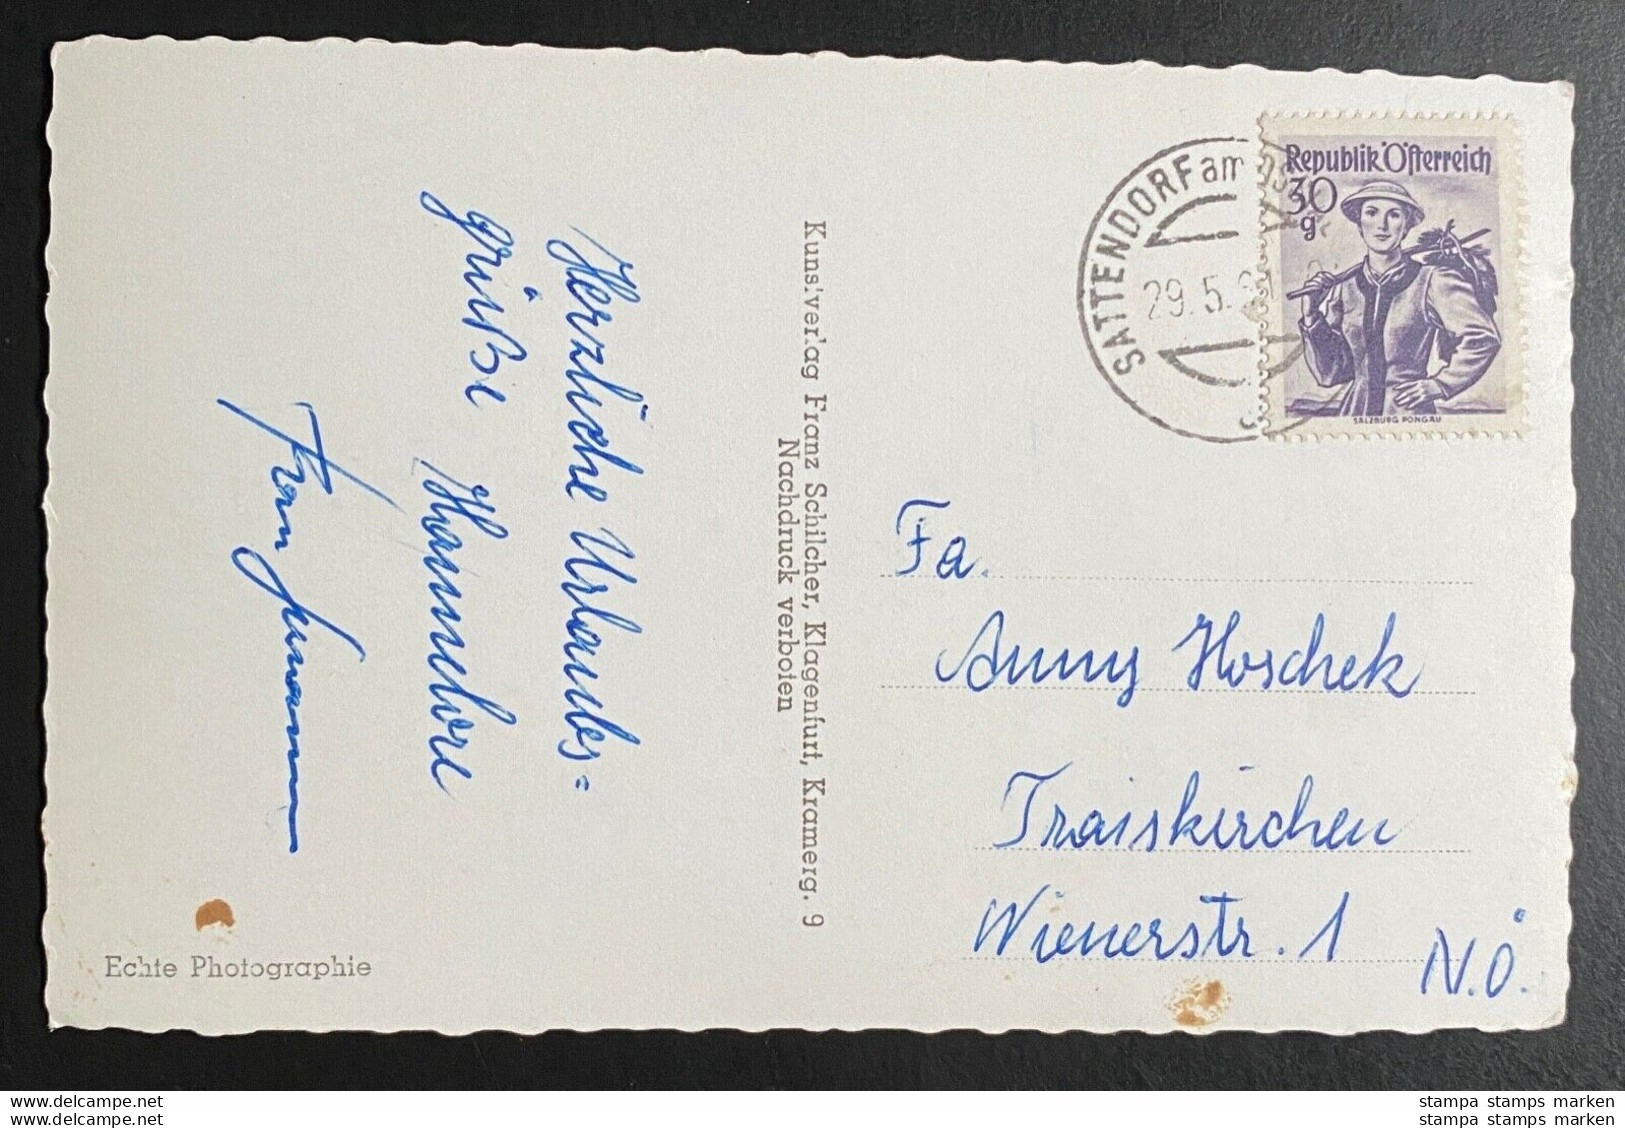 Herzliche Urlaubs=
grüße
Kunstverlag Franz Schilcher, Klagenfurt, Kramerg. 9
Nachdruck verboten
Echte Photographie
SATTENDORF am
29.5.
Republik Österreich
30
g
SALZBURG PONGAU
Fa.
Anny Hoschek
Traiskirchen
Wienerstr. 1
N.Ö.
www.delcampe.net
www.delcampe.net
stampa stamps marken
stampa stamps marken